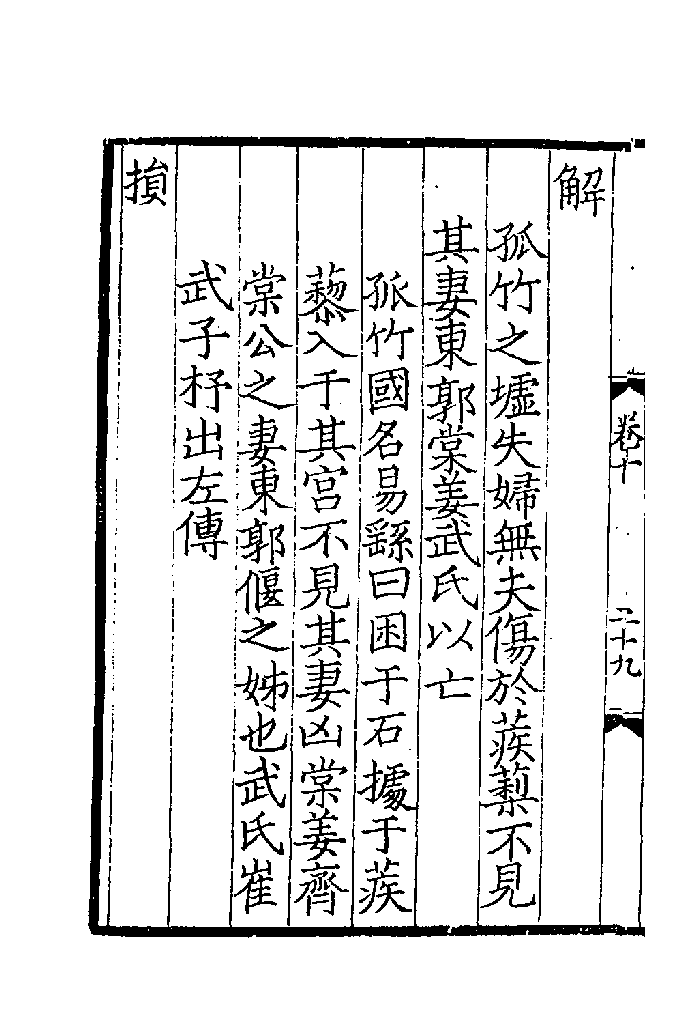 解
孤竹之墟失婦無夫傷於蒺蔾不見
其妻東郭棠姜武氏以亡
孤竹國名易繇曰困于石據于蒺
蔾入于其宫不見其妻凶棠姜齊
棠公之妻東郭偃之姊也武氏崔
武子杼出左傳
損
卷十
二十九